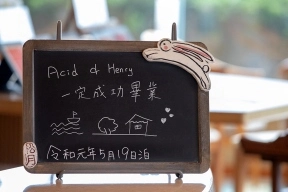 Acid & Henry
一定成功畢業
令和元年5月19日泊